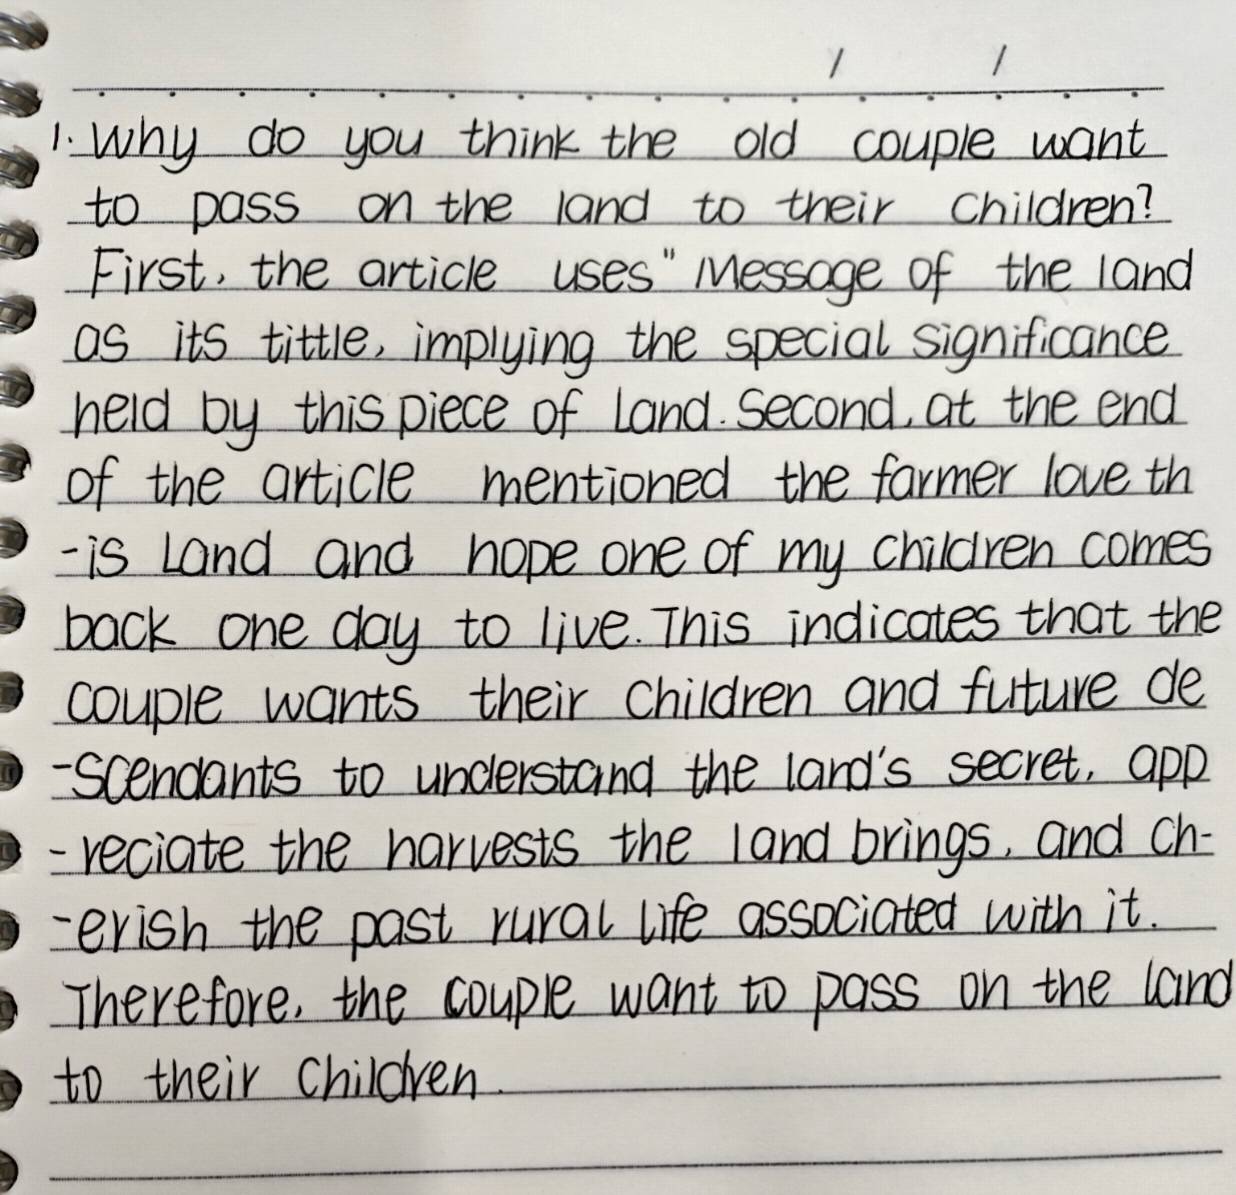 1. Why do you think the old couple want
to pass on the land to their children?
First, the article uses "Message of the land
as its tittle, implying the special significance
held by this piece of land. Second, at the end
of the article mentioned the farmer love th
-is land and hope one of my children comes
back one day to live. This indicates that the
couple wants their children and future de
-scendants to understand the land's secret, app
-reciate the harvests the land brings, and ch-
-erish the past rural life associated with it.
Therefore, the couple want to pass on the land
to their children.